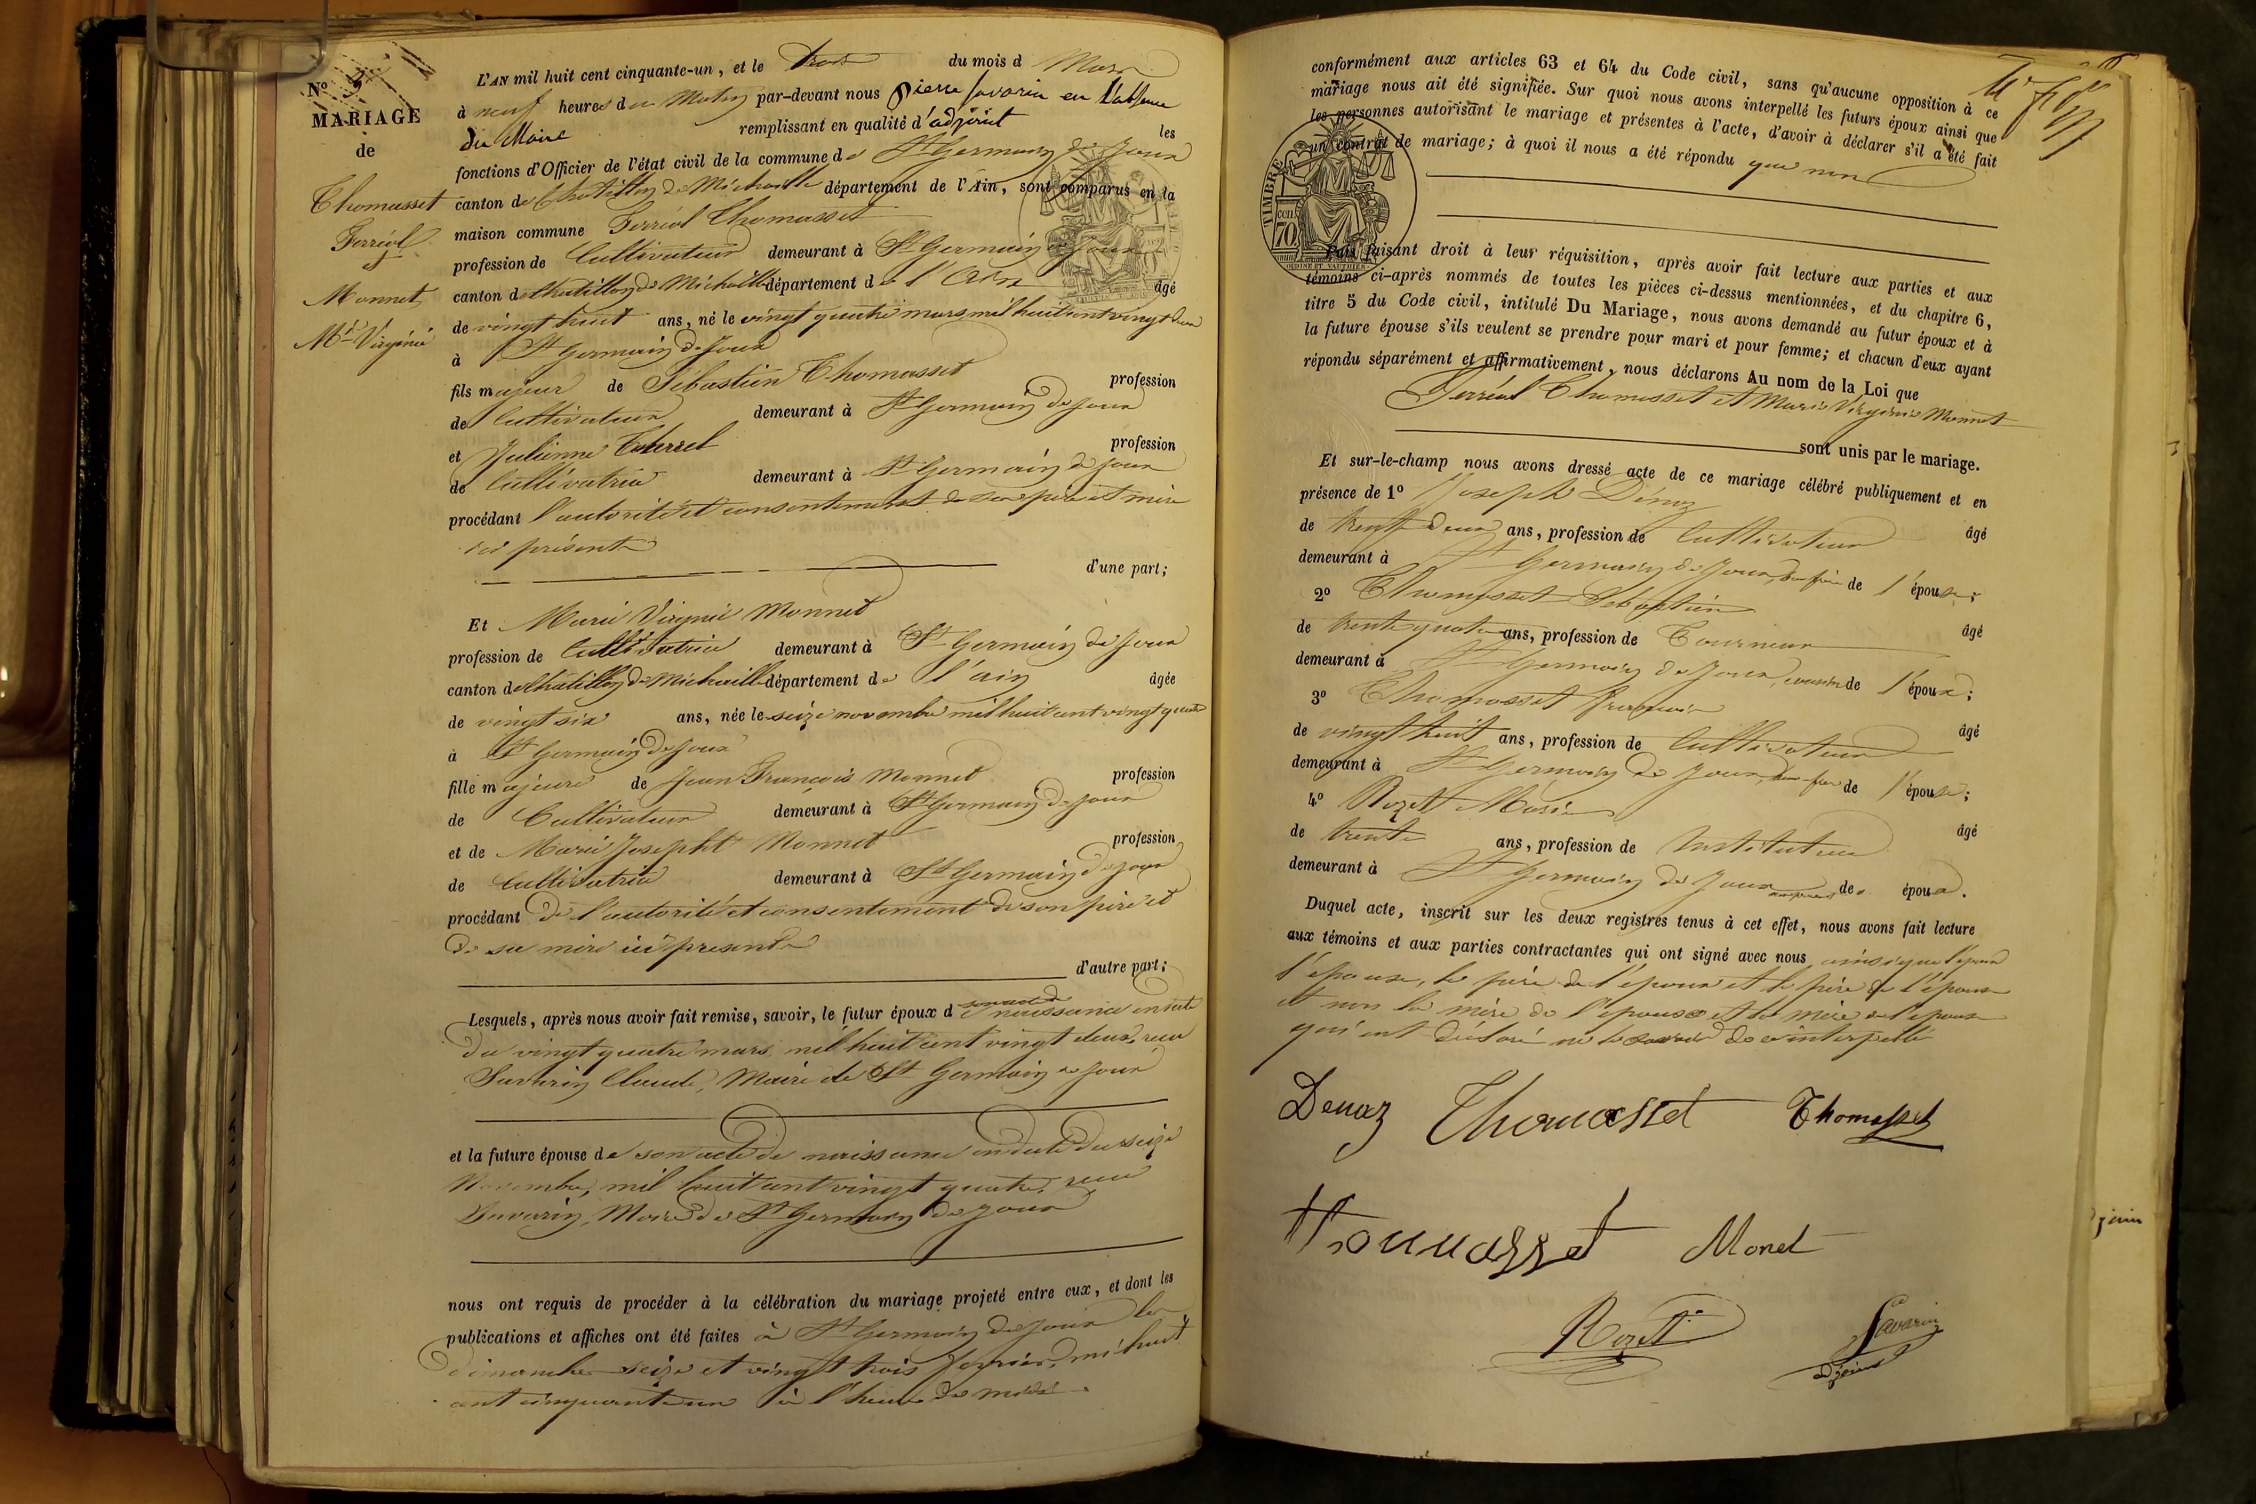 N° 3
MARIAGE
de
Thomasset
Ferréol
et
Monnet
Mie Virginie
L'AN mil huit cent cinquante-un, et le trois du mois d Mars
à neuf heures du Matin par-devant nous Pierre Savarin en l'absence
du Maire remplissant en qualité d'adjoint les
fonctions d'Officier de l'état civil de la commune de St Germain de Joux
canton de Châtillon de Michaille département de l'Ain, sont comparus en la
maison commune Ferréol Thomasset
profession de Cultivateur demeurant à St Germain de Joux
canton de Chatillon de Michaille département de l'Ain âgé
de vingt huit ans, né le vingt quatre mars mil huit cent vingt deux
à St Germain de Joux
fils majeur de Sébastien Thomasset profession
de Cultivateur demeurant à St Germain de Joux
et Julienne profession
de Cultivatrice demeurant à St Germain de Joux
procédant l'autorité et consentement de son père et mère
ici présents
d'une part;
Et Marie Virginie Monnet
profession de Cultivatrice demeurant à St Germain de Joux
canton de Châtillon de Michaille département de l'ain âgée
de vingt six ans, née le seize novembre mil huit cent vingt quatre
à St Germain de Joux
fille majeure de Jean François Monnet profession
de Cultivateur demeurant à St Germain de Joux
et de Marie Josephte Monnet profession
de Cultivatrice demeurant à St Germain de Joux
procédant de l'autorité et consentement de son père et
de sa mère ici présents
d'autre part;
Lesquels, après nous avoir fait remise, savoir, le futur époux de son acte de naissance en date
du vingt quatre mars mil huit cent vingt deux, reçu
Savarin Claude, Maire de St Germain de Joux
et la future épouse de son acte de naissance en date du seize
Novembre, mil huit cent vingt quatre, reçu
Savarin, Maire de St Germain de Joux
nous ont requis de procéder à la célébration du mariage projeté entre eux, et dont les
publications et affiches ont été faites à St Germain de Joux les
dimanches seize et vingt trois février, mil huit
cent cinquante un à l'heure de midi.
conformément aux articles 63 et 64 du Code civil, sans qu'aucune opposition à ce
mariage nous ait été signifiée. Sur quoi nous avons interpellé les futurs époux ainsi que
les personnes autorisant le mariage et présentes à l'acte, d'avoir à déclarer s'il a été fait
un contrat de mariage; à quoi il nous a été répondu que non
TIMBRE
cen.
70
Puis faisant droit à leur réquisition, après avoir fait lecture aux parties et aux
témoins ci-après nommés de toutes les pièces ci-dessus mentionnées, et du chapitre 6,
titre 5 du Code civil, intitulé Du Mariage, nous avons demandé au futur époux et à
la future épouse s'ils veulent se prendre pour mari et pour femme; et chacun d'eux ayant
répondu séparément et affirmativement, nous déclarons Au nom de la Loi que
Ferréol Thomasset et Marie Virginie Monnet
sont unis par le mariage.
Et sur-le-champ nous avons dressé acte de ce mariage célébré publiquement et en
présence de 1° Joseph Dénoz âgé
de trente deux ans, profession de Cultivateur
demeurant à St Germain de Joux, beau frère de l'épouse;
2° Thomasset Sébastien âgé
de trente quatre ans, profession de Tourneur
demeurant à St Germain de Joux, cousin de l'époux;
3° Thomasset François âgé
de vingt huit ans, profession de Cultivateur
demeurant à St Germain de Joux, beau-frère de l'épouse;
4° Rozet Marie âgé
de trente ans, profession de Instituteur
demeurant à St Germain de Joux de époux.
Duquel acte, inscrit sur les deux registres tenus à cet effet, nous avons fait lecture
aux témoins et aux parties contractantes qui ont signé avec nous ainsi que l'époux
l'épouse, le père de l'époux et le père de l'épouse
et non la mère de l'épouse et la mère de l'époux
qui ont déclaré ne le savoir de ce interpellé
Denoz Thomasset Thomasset
Thomasset Monet
Rozet Savarin
adjoint